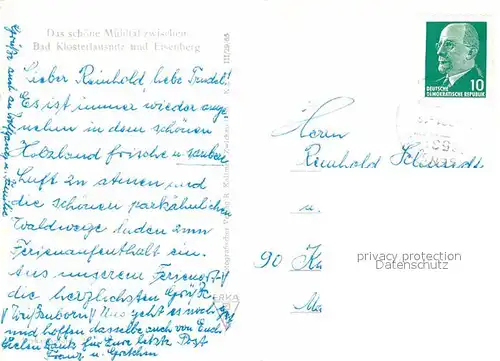 Das schöne Mühltal zwischen
Bad Klosterlausnitz und Eisenberg
Lieber Reinhold, liebe Trudel!
Es ist immer wieder ange
nehm in dem schönen
Holzland frische u. saubere
Luft zu atmen und
die schönen parkähnlichen
Waldwege laden zum
Ferienaufenthalt ein.
Aus unserem Ferienort
die herzlichsten Grüße
(Weißenborn) Uns geht es noch gut
und hoffen dasselbe auch von Euch
Vielen Dank für Eure letzte Post
Franz u. Gretchen
Grüße auch an
u. Familie
III/29/65
DEUTSCHE
DEMOKRATISCHE REPUBLIK
10
Herrn
Reinhold Schmidt
u.
90
privacy protection
Datenschutz